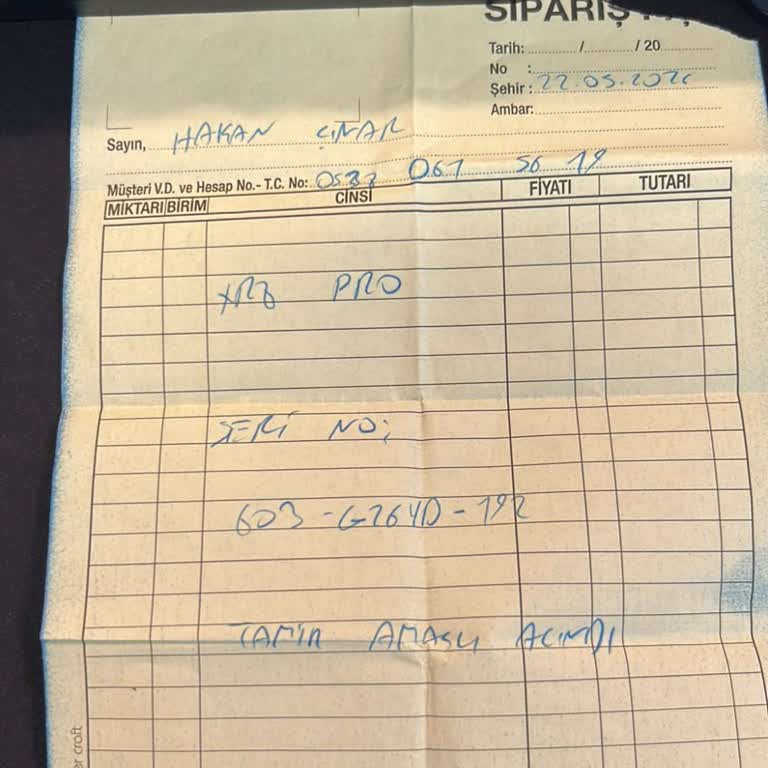 SİPARİŞ
Tarih: / / 20
No :
Şehir : 22.05.2026
Ambar:
Sayın, HAKAN ÇINAR
Müşteri V.D. ve Hesap No.- T.C. No: 0533 061 56 19
MİKTARI BİRİM CİNSİ FİYATI TUTARI
XR8 PRO
SERİ NO:
603-G264D-192
TAMİR AMAÇLI ALINDI
er croft